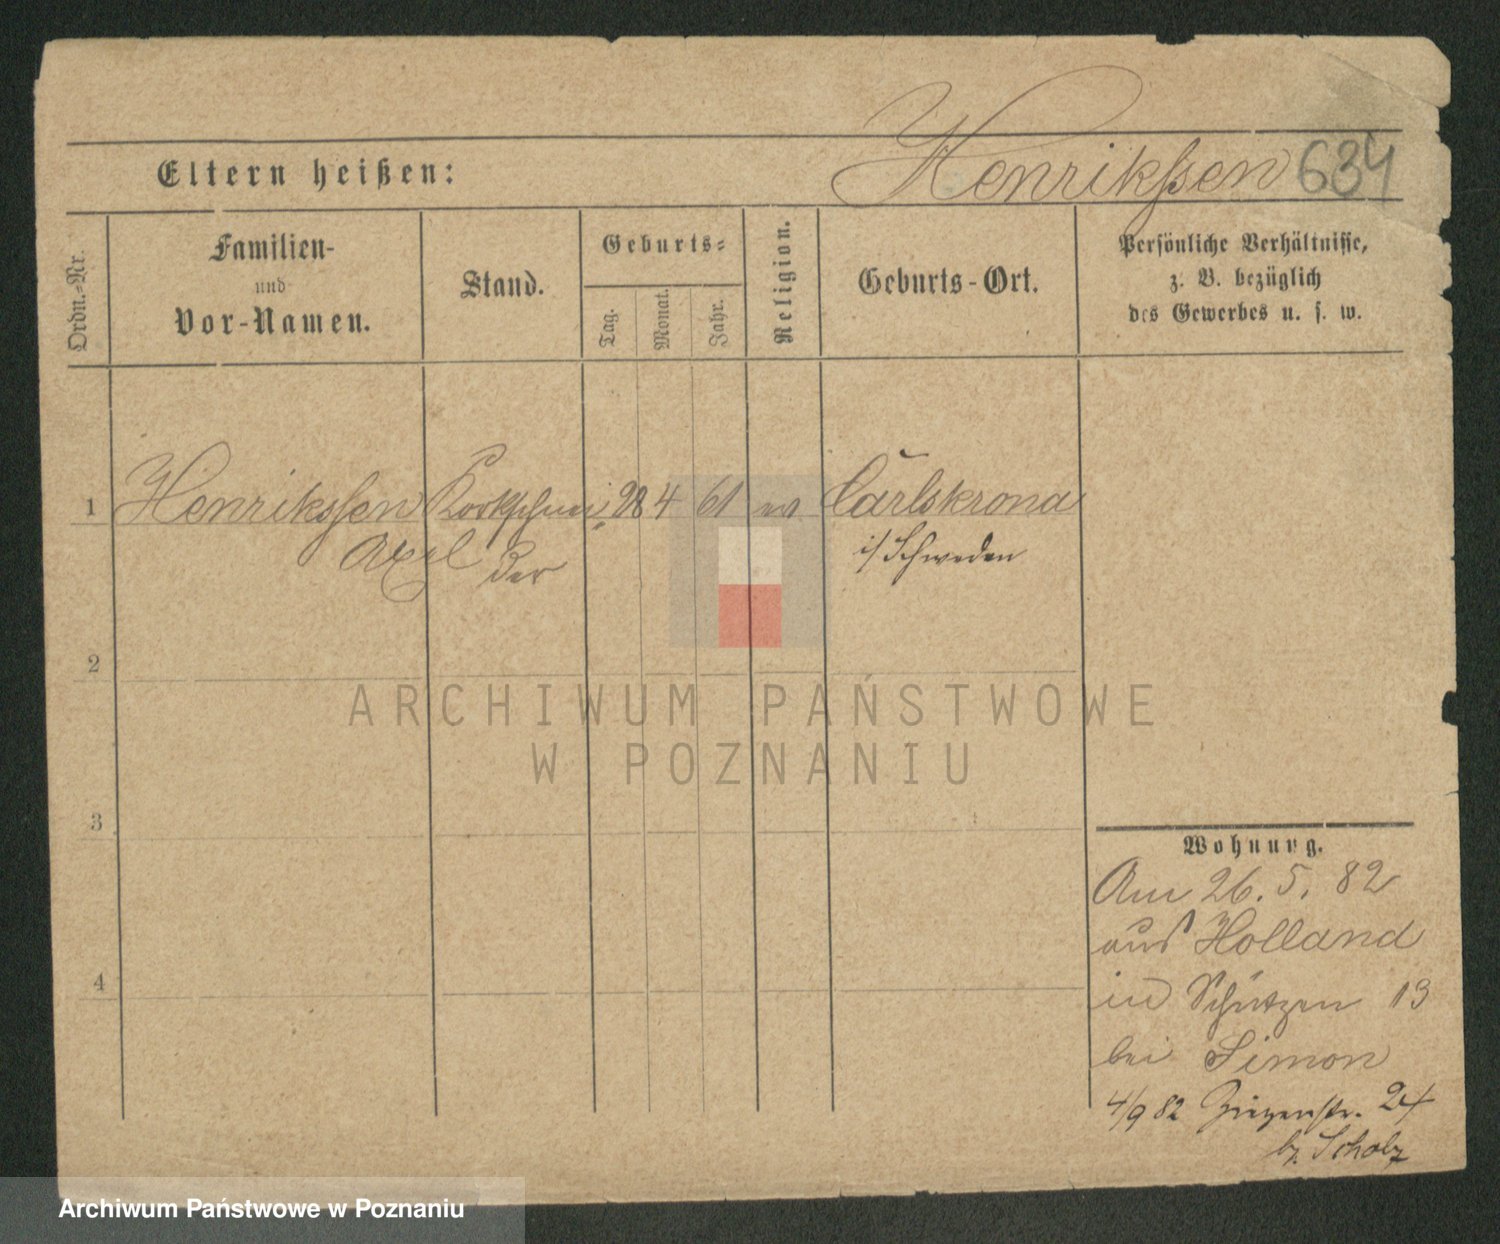 Henrikſsen 634
Eltern heißen:
Ordn.-Nr.
Familien-
und
Vor-Namen.
Stand.
Geburts-
Tag.
Monat.
Jahr.
Religion.
Geburts-Ort.
Persönliche Verhältnisse,
z. B. bezüglich
des Gewerbes u. s. w.
1 Henriksſen Korkschnei- 28 4 61 ev Carlskrona
Axel der i/ Schweden
2
3
4
ARCHIWUM PAŃSTWOWE
W POZNANIU
Wohnung.
Am 26. 5. 82
aus Holland
in Schützen 13
bei Simon
4/9 82 24
b. Scholz
Archiwum Państwowe w Poznaniu